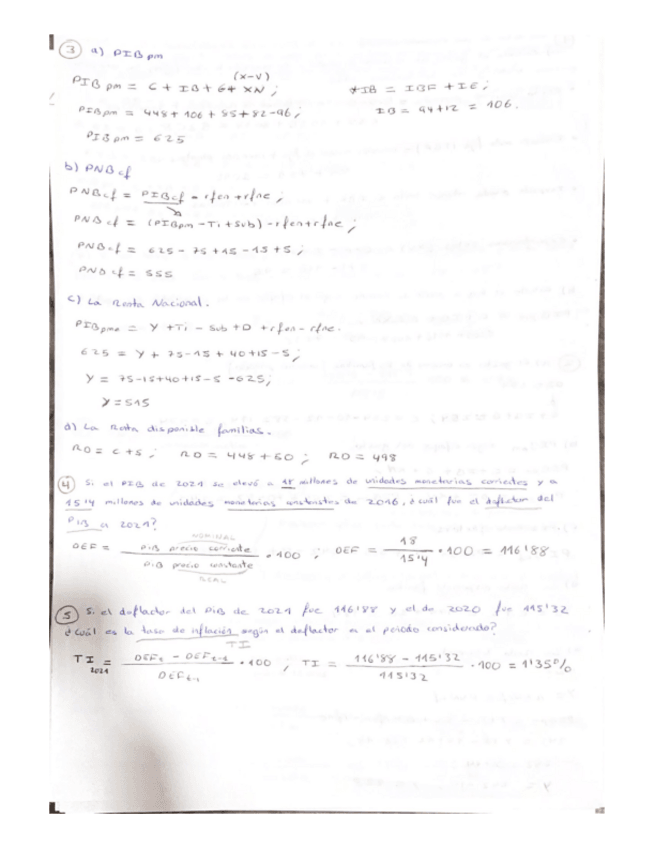 3 a) PIB pm
(X-V)
PIB pm = C + IB + G + XN;
*IB = IBF + IE;
PIBpm = 448 + 106 + 85 + 82 - 96;
IB = 94 + 12 = 106.
PIBpm = 625
b) PNBcf
PNBcf = PIBcf - rfen + rfne;
PNBcf = (PIBpm - Ti + Sub) - rfen + rfne;
PNBcf = 625 - 75 + 15 - 15 + 5;
PNBcf = 555
c) La Renta Nacional.
PIBpm = Y + Ti - Sub + D + rfen - rfne.
625 = Y + 75 - 15 + 40 + 15 - 5;
Y = 75 - 15 + 40 + 15 - 5 - 625;
Y = 515
d) La Renta disponible familias.
RD = C + S; RD = 448 + 50; RD = 498
4 Si el PIB de 2021 se elevó a 18 millones de unidades monetarias corrientes y a
15'4 millones de unidades monetarias constantes de 2016, ¿cuál fue el deflactor del
PIB en 2021?
NOMINAL
DEF = PIB precio corriente / PIB precio constante · 100; DEF = 18 / 15'4 · 100 = 116'88
REAL
5 Si el deflactor del PIB de 2021 fue 116'88 y el de 2020 fue 115'32
¿cuál es la tasa de inflación según el deflactor en el periodo considerado?
TI
TI 2021 = DEFt - DEFt-1 / DEFt-1 · 100, TI = 116'88 - 115'32 / 115'32 · 100 = 1'35%